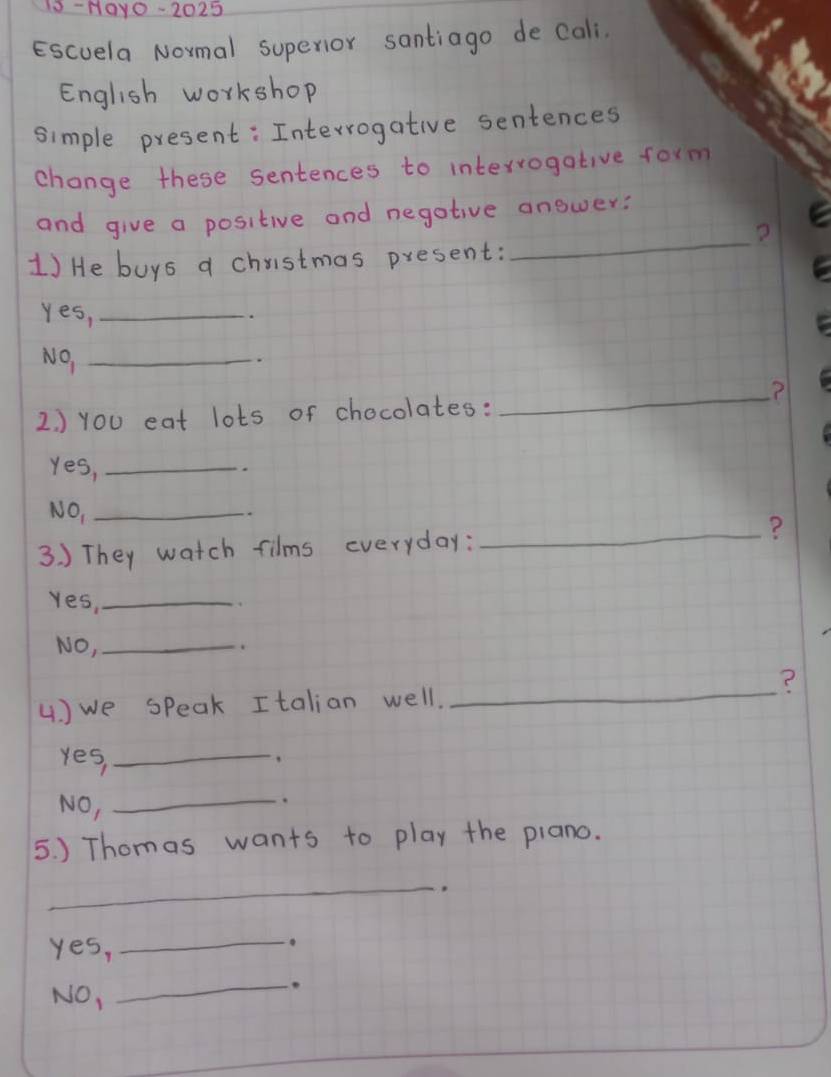 13-Mayo-2025
Escuela Normal superior santiago de Cali.
English workshop
simple present: Interrogative sentences
change these sentences to interrogative form
and give a positive and negative answer:
1) He buys a christmas present: ____________?
Yes, __________.
No, __________.
2.) You eat lots of chocolates: ____________?
Yes, __________.
No, __________.
3.) They watch films everyday: ____________?
Yes, __________.
No, __________.
4.) We speak Italian well. ____________?
Yes, __________.
No, __________.
5.) Thomas wants to play the piano.
____________.
Yes, __________.
No, __________.